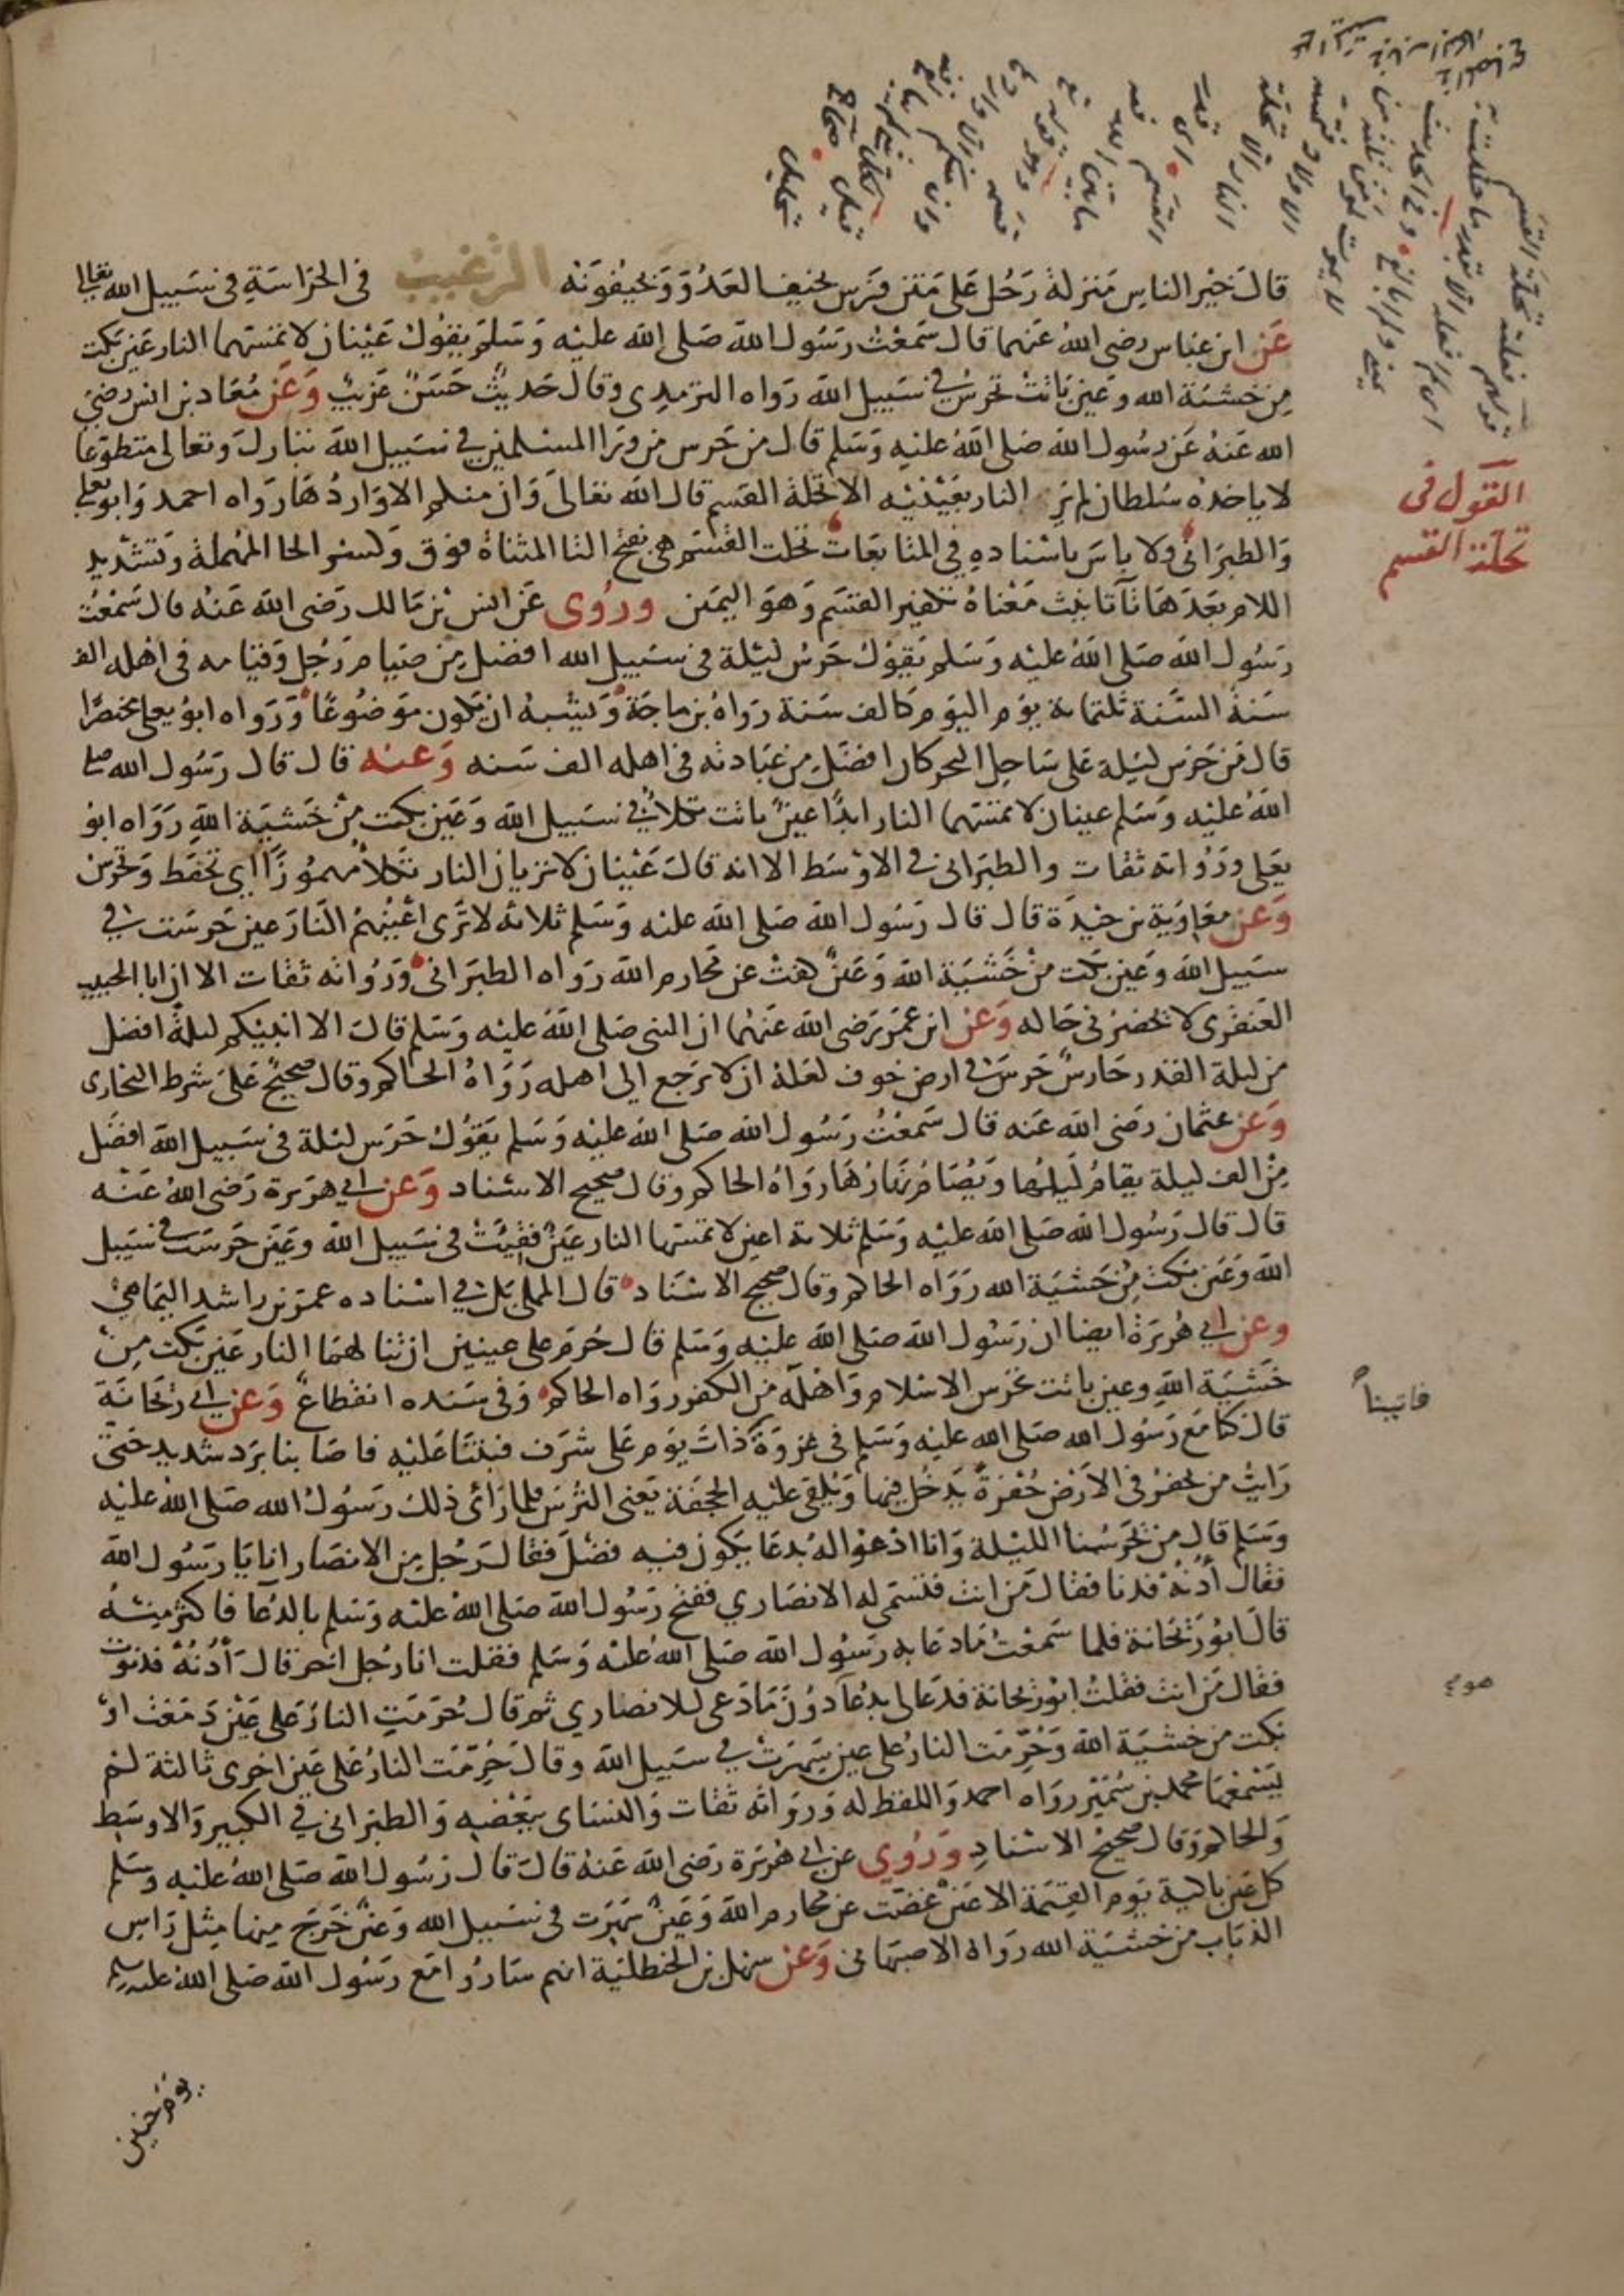 قال خير الناس منزلة رجل على متن فرس يخيف العدو ويخيفونه الترغيب في الحراسة في سبيل الله تعالى
عن ابن عباس رضي الله عنهما قال سمعت رسول الله صلى الله عليه وسلم يقول عينان لا تمسهما النار عين بكت
من خشية الله وعين باتت تحرس في سبيل الله رواه الترمذي وقال حديث حسن غريب وعن معاذ بن انس رضي
الله عنه عن رسول الله صلى الله عليه وسلم قال من حرس من ورا المسلمين في سبيل الله تبارك وتعالى متطوعا
لا ياخذه سلطان لم ير النار بعينيه الا تحلة القسم قال الله تعالى وان منكم الا واردها رواه احمد وابو يعلى
والطبراني ولا باس باسناده في المتابعات تحلت القسم هي بفتح التا المثناة فوق وكسر الحا المهملة وتشديد
اللام بعدها تآ تانيث معناه تكفير القسم وهو اليمين وروى عن انس بن مالك رضي الله عنه قال سمعت
رسول الله صلى الله عليه وسلم يقول حرس ليلة في سبيل الله افضل من صيام رجل وقيامه في اهله الف
سنة السنة ثلثماية يوم اليوم كالف سنة رواه بن ماجة ويشبه ان يكون موضوعا ورواه ابو يعلى مختصرا
قال من حرس ليلة على ساحل البحر كان افضل من عبادته في اهله الف سنه وعنه قال قال رسول الله صلى
الله عليه وسلم عينان لا تمسهما النار ابدا عين باتت تكلأ في سبيل الله وعين بكت من خشية الله رواه ابو
يعلى ورواته ثقات والطبراني في الاوسط الا انه قال عينان لا تريان النار تكلأ مهموزا اي تحفظ وتحرس
وعن معاوية بن حيدة قال قال رسول الله صلى الله عليه وسلم ثلاثة لا ترى اعينهم النار عين حرست في
سبيل الله وعين بكت من خشية الله وعين كفت عن محارم الله رواه الطبراني ورواته ثقات الا ان ابا الحبيب
العنقزي لا يحضرني حاله وعن ابن عمر رضي الله عنهما ان النبي صلى الله عليه وسلم قال الا انبيكم ليلة افضل
من ليلة القدر حارس حرس في ارض خوف لعله ان لا يرجع الى اهله رواه الحاكم وقال صحيح على شرط البخاري
وعن عثمان رضي الله عنه قال سمعت رسول الله صلى الله عليه وسلم يقول حرس ليلة في سبيل الله افضل
من الف ليلة يقام ليلها ويصام نهارها رواه الحاكم وقال صحيح الاسناد وعن ابي هريرة رضي الله عنه
قال قال رسول الله صلى الله عليه وسلم ثلاثة اعين لا تمسها النار عين فقيت في سبيل الله وعين حرست في سبيل
الله وعين بكت من خشية الله رواه الحاكم وقال صحيح الاسناد قال المملي بل في اسناده عمر بن راشد اليمامي
وعن ابي هريرة ايضا ان رسول الله صلى الله عليه وسلم قال حرم على عينين ان تنالهما النار عين بكت من
خشية الله وعين باتت تحرس الاسلام واهله من الكفر رواه الحاكم وفي سنده انقطاع وعن ابي ريحانة
قال كنا مع رسول الله صلى الله عليه وسلم في غزوة ذات يوم على شرف فبتنا عليه فاصابنا برد شديد حتى
رايت من يحفر في الارض حفرة يدخل فيها ويلقى عليه الحجفة يعني الترس فلما راى ذلك رسول الله صلى الله عليه
وسلم قال من يحرسنا الليلة وانا ادعو اله بدعا يكون فيه فضل فقال رجل من الانصار انا يا رسول الله
فقال أدنه فدنا فقال من انت فتسمى له الانصاري ففتح رسول الله صلى الله عليه وسلم بالدعا فاكثر منه
قال ابو ريحانة فلما سمعت ما دعا به رسول الله صلى الله عليه وسلم فقلت انا رجل اخر قال أدنه فدنوت
فقال من انت فقلت ابو ريحانة فدعا لي بدعآ دون ما دعى للانصاري ثم قال حرمت النار على عين دمعت او
بكت من خشية الله وحرمت النار على عين سهرت في سبيل الله وقال حرمت النار على عين اخرى ثالثة لم
يسمعها محمد بن سمير رواه احمد واللفظ له ورواته ثقات والنساي ببعضه والطبراني في الكبير والاوسط
والحاكم وقال صحيح الاسناد وروي عن ابي هريرة رضي الله عنه قال قال رسول الله صلى الله عليه وسلم
كل عين باكية يوم القيمة الا عين غضت عن محارم الله وعين سهرت في سبيل الله وعين خرج منها مثل راس
الذباب من خشية الله رواه الاصبهاني وعن سهل بن الحنظلية انهم ساروا مع رسول الله صلى الله عليه وسلم
يوم حنين
القول في
تحلة القسم
فاتينا